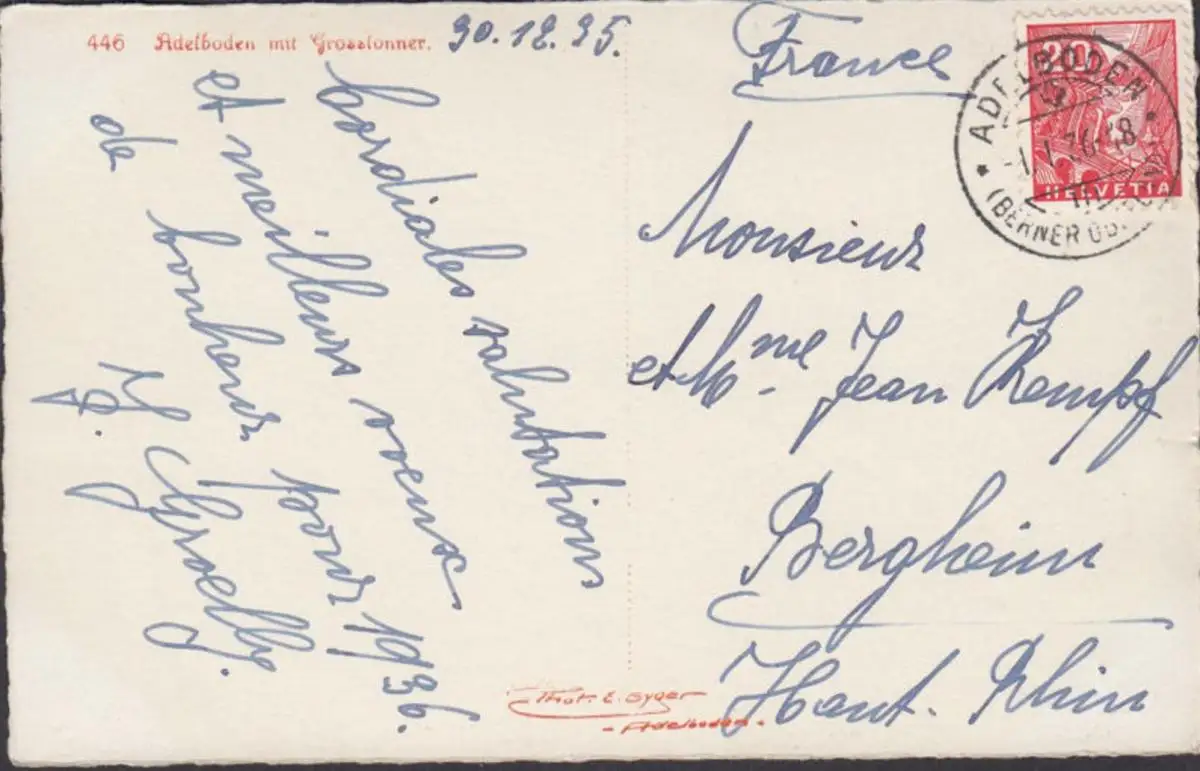 446 Adelboden mit Grosslonner.
30.12.35.
Cordiales salutations
et meilleurs voeux
de bonheur pour 1936.
France
Monsieur
et Mme Jean Kempf
Bergheim
Haut. Rhin
20
HELVETIA
ADELBODEN
(BERNER OB.
Phot. E. Gyger
- Adelboden -